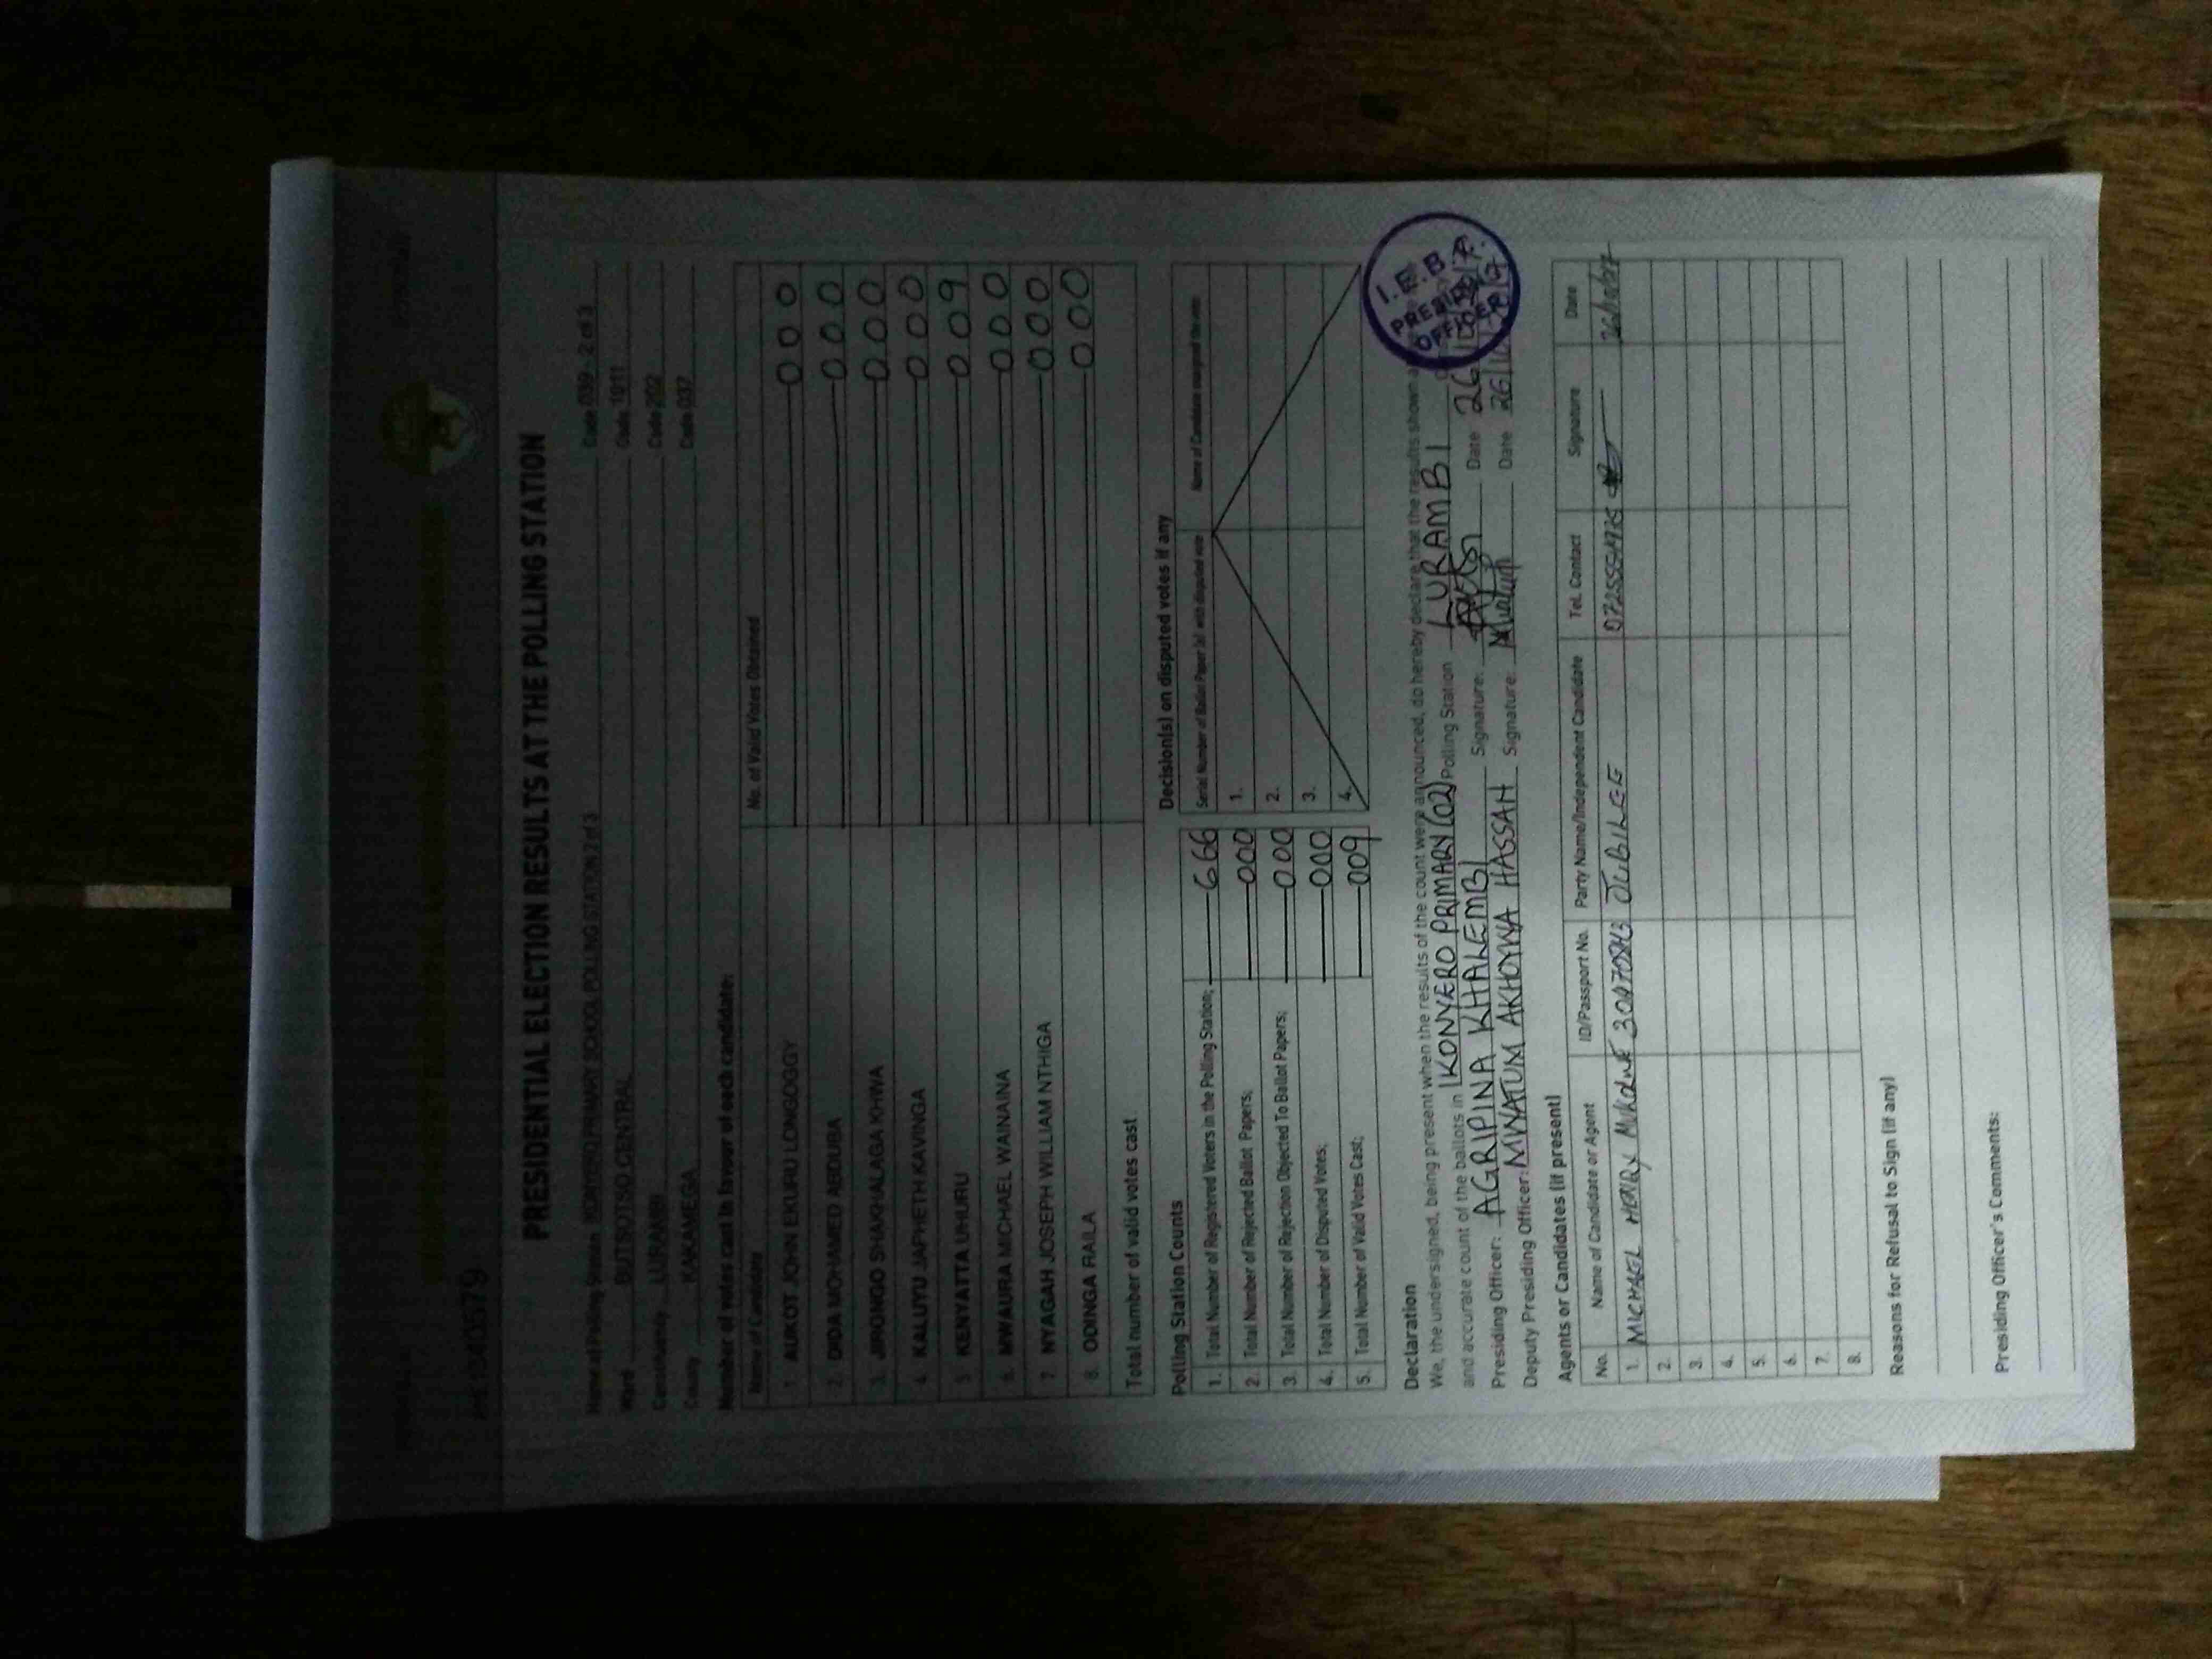 PRESIDENTIAL ELECTION RESULTS AT THE POLLING STATION
Name of Polling Station KONYERO PRIMARY SCHOOL POLLING STATION 2 of 3 Code 059 - 2 of 3
Ward BUTSOTSO CENTRAL Code 1011
Constituency LURAMBI Code 202
County KAKAMEGA Code 037
Number of votes cast in favour of each candidate:
Name of Candidate No. of Valid Votes Obtained
1 AUKOT JOHN EKURU LONGOGGY 000
2. DIDA MOHAMED ABDUBA 000
3. JIRONGO SHAKHALAGA KHWA 000
4. KALUYU JAPHETH KAVINGA 000
5 KENYATTA UHURU 009
6. MWAURA MICHAEL WAINAINA 000
7 NYAGAH JOSEPH WILLIAM NTHIGA 000
8. ODINGA RAILA 000
Total number of valid votes cast
Polling Station Counts
1. Total Number of Registered Voters in the Polling Station; 666
2. Total Number of Rejected Ballot Papers; 000
3. Total Number of Rejection Objected To Ballot Papers; 000
4. Total Number of Disputed Votes; 000
5. Total Number of Valid Votes Cast; 009
Decision(s) on disputed votes if any
Serial Number of Ballot Paper (s) with disputed vote
1.
2.
3.
4.
Declaration
We, the undersigned, being present when the results of the count were announced, do hereby declare that the results shown
and accurate count of the ballots in KONYERO PRIMARY (02) Polling Station LURAMBI
Presiding Officer: AGRIPINA KHALEMBI Signature: Date 26
Deputy Presiding Officer: MWATUM AKHOYWA HASSAH Signature: Date 26
I.E.B.C.
PRESIDING
OFFICER
Agents or Candidates (if present)
No. Name of Candidate or Agent ID/Passport No. Party Name/Independent Candidate Tel. Contact Signature Date
1. MICHAEL HENRY JUBILEE
2.
3.
4.
5.
6.
7.
8.
Reasons for Refusal to Sign (if any)
Presiding Officer's Comments: